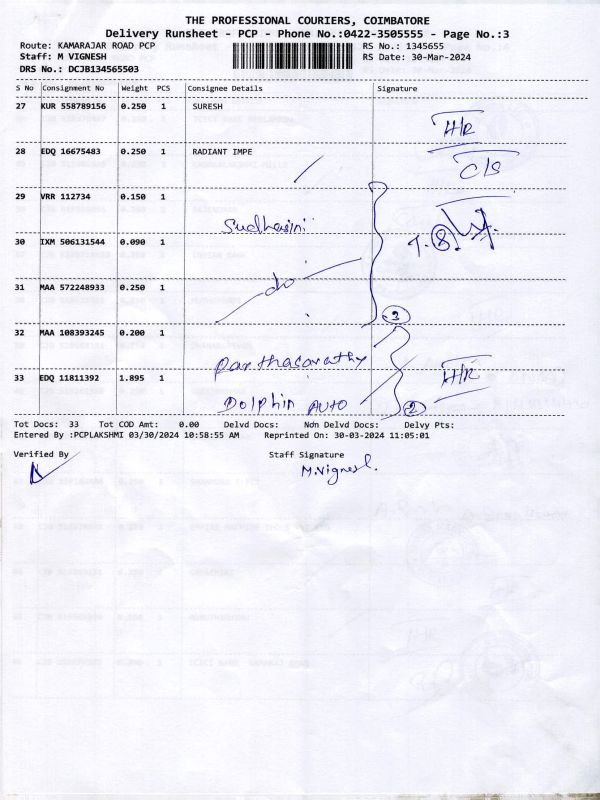 THE PROFESSIONAL COURIERS, COIMBATORE
Delivery Runsheet - PCP - Phone No.:0422-3505555 - Page No.:3
Route: KAMARAJAR ROAD PCP RS No.: 1345655
Staff: M VIGNESH RS Date: 30-Mar-2024
DRS No.: DCJB134565503
S No Consignment No Weight PCS Consignee Details Signature
27 KUR 558789156 0.250 1 SURESH
H/R
28 EDQ 16675483 0.250 1 RADIANT IMPE
C/S
29 VRR 112734 0.150 1
Sudhasini
30 IXM 506131544 0.090 1
31 MAA 572248933 0.250 1
do
3
32 MAA 108393245 0.200 1
Parthasarathy
33 EDQ 11811392 1.895 1
H/R
Dolphin AUTO 2
Tot Docs: 33 Tot COD Amt: 0.00 Delvd Docs: Ndn Delvd Docs: Delvy Pts:
Entered By :PCPLAKSHMI 03/30/2024 10:58:55 AM Reprinted On: 30-03-2024 11:05:01
Verified By Staff Signature
M.Vignesh.